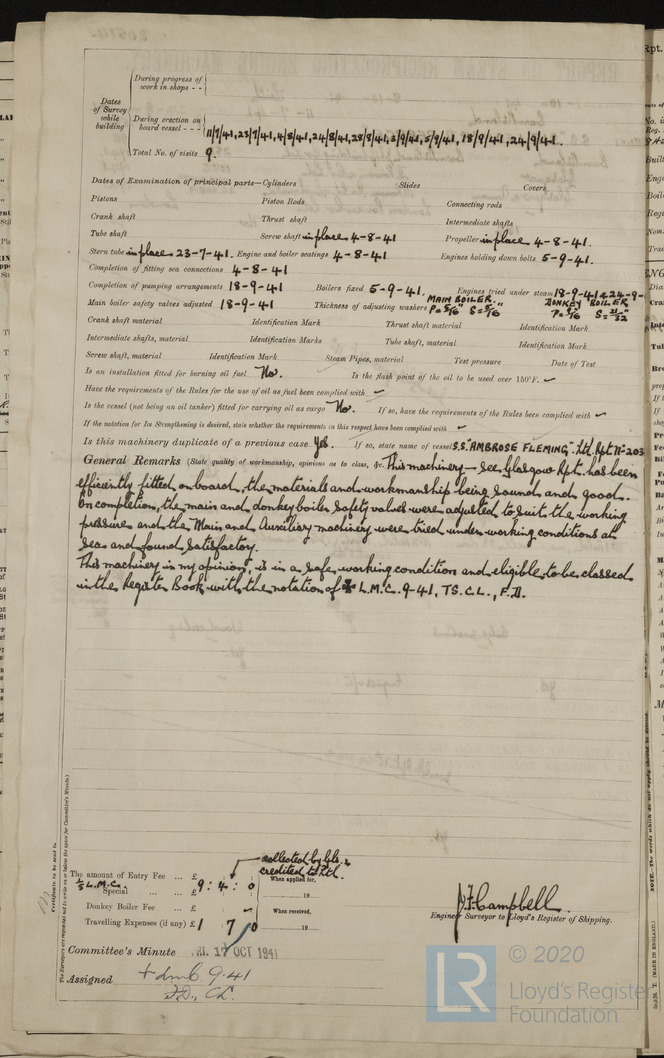 During progress of
work in shops - -
Dates
of Survey
while
building
During erection on
board vessel - - -
11/7/41, 23/7/41, 4/8/41, 24/8/41, 28/8/41, 3/9/41, 5/9/41, 18/9/41, 24/9/41.
Total No. of visits 9.
Dates of Examination of principal parts—Cylinders Slides Covers
Pistons Piston Rods Connecting rods
Crank shaft Thrust shaft Intermediate shafts
Tube shaft Screw shaft in place 4-8-41 Propeller in place 4-8-41.
Stern tube in place 23-7-41. Engine and boiler seatings 4-8-41 Engines holding down bolts 5-9-41.
Completion of fitting sea connections 4-8-41
Completion of pumping arrangements 18-9-41 Boilers fixed 5-9-41. Engines tried under steam 18-9-41 & 24-9-
Main boiler safety valves adjusted 18-9-41 Thickness of adjusting washers MAIN BOILER. P = 5/16" S = 5/16" DONKEY BOILER P = S = 21/32"
Crank shaft material Identification Mark Thrust shaft material Identification Mark
Intermediate shafts, material Identification Marks Tube shaft, material Identification Mark
Screw shaft, material Identification Mark Steam Pipes, material Test pressure Date of Test
Is an installation fitted for burning oil fuel No. Is the flash point of the oil to be used over 150°F.
Have the requirements of the Rules for the use of oil as fuel been complied with
Is the vessel (not being an oil tanker) fitted for carrying oil as cargo No. If so, have the requirements of the Rules been complied with
If the notation for Ice Strengthening is desired, state whether the requirements in this respect have been complied with
Is this machinery duplicate of a previous case Yes. If so, state name of vessel S.S. "AMBROSE FLEMING" Lth. Rpt. No 203
General Remarks (State quality of workmanship, opinions as to class, &c. This machinery - see Glasgow Rpt. has been
efficiently fitted on board, the materials and workmanship being sound and good.
On completion, the main and donkey boiler safety valves were adjusted to suit the working
pressures and the Main and Auxiliary machinery were tried under working conditions at
sea and found satisfactory.
This machinery in my opinion, is in a safe working condition and eligible to be classed
in the Register Book with the notation of ✠ L.M.C. 9-41, T.S. C.L., F.D.
Certificate to be sent to
The Surveyors are requested not to write on or below the space for Committee's Minute.
collected by Gls. &
credited to Lth.
The amount of Entry Fee ... £
1/5 L.M.C. Special ... ... £ 9 : 4 : 0 When applied for,
19
Donkey Boiler Fee ... £ When received,
Travelling Expenses (if any) £ 1 7 0 19
J. F. Campbell.
Engineer Surveyor to Lloyd's Register of Shipping.
Committee's Minute FRI. 17 OCT 1941
Assigned + LMC 9.41
F.D., CL.
© 2020
Lloyd's Register
Foundation